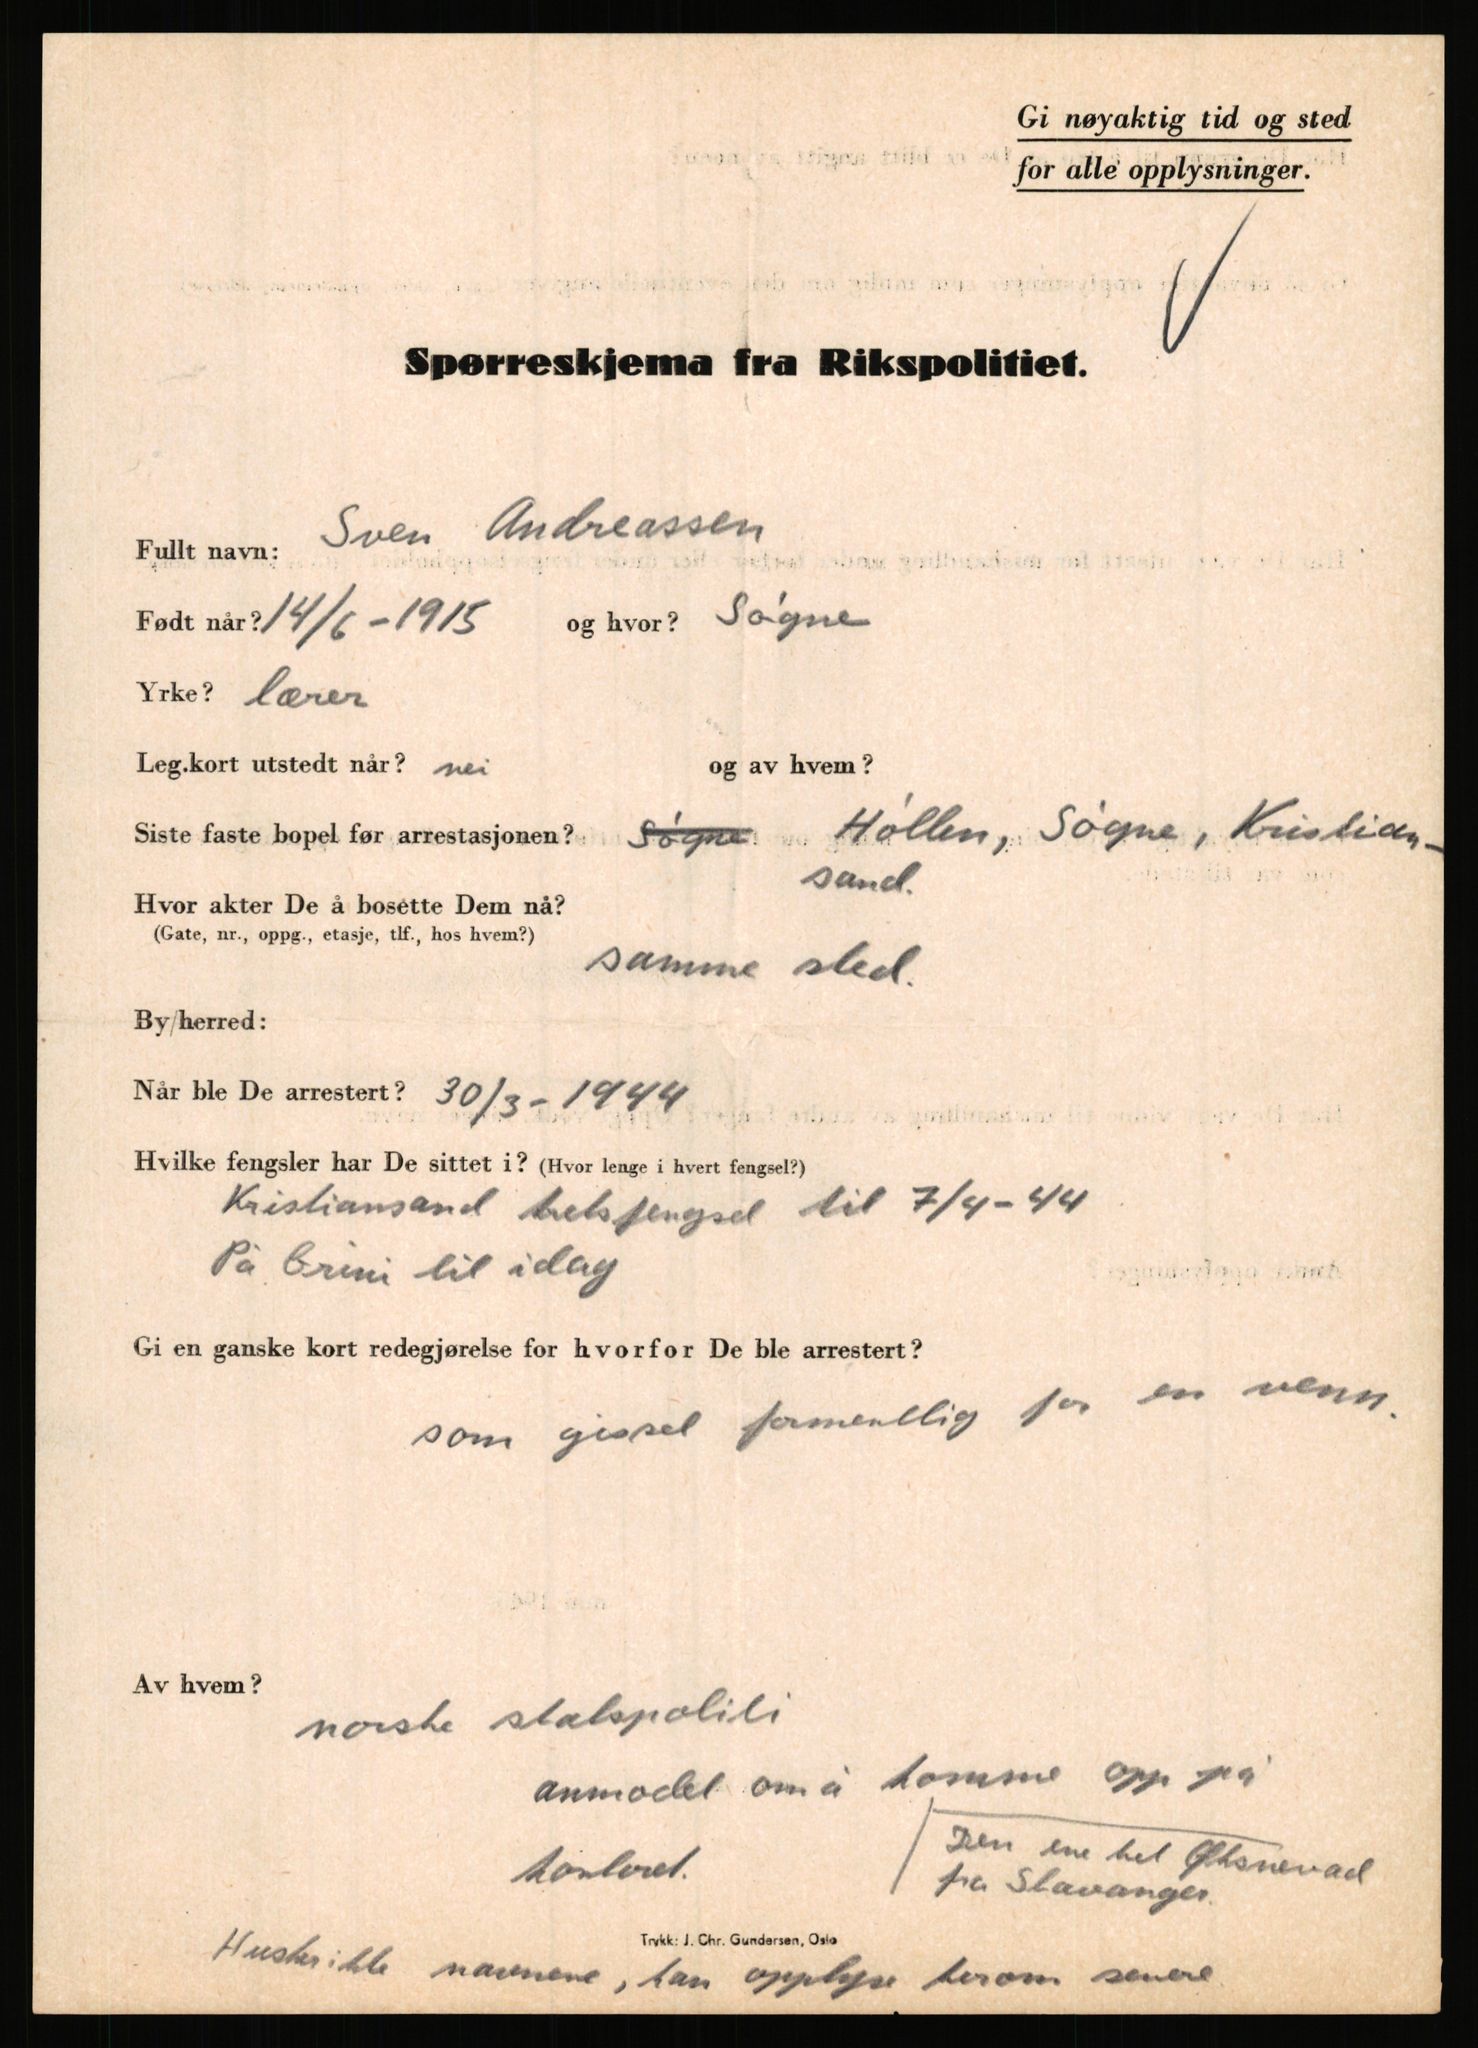 Gi nøyaktig tid og sted
for alle opplysninger.
Spørreskjema fra Rikspolitiet.
Fullt navn: Sven Andreassen
Født når? 14/6 - 1915 og hvor? Søgne
Yrke? lærer
Leg.kort utstedt når? nei og av hvem?
Siste faste bopel før arrestasjonen? Søgne Høllen, Søgne, Kristian-
sand.
Hvor akter De å bosette Dem nå?
(Gate, nr., oppg., etasje, tlf., hos hvem?)
samme sted.
By/herred:
Når ble De arrestert? 30/3 - 1944
Hvilke fengsler har De sittet i? (Hvor lenge i hvert fengsel?)
Kristiansand kretsfengsel til 7/4 - 44
På Grini til idag
Gi en ganske kort redegjørelse for hvorfor De ble arrestert?
som gissel formentlig for en venn.
Av hvem?
norske statspoliti
anmodet om å komme opp på
kontoret.
Den ene het Øksnevad
fra Stavanger.
Trykk: J. Chr. Gundersen, Oslo
Husker ikke navnene, kan opplyse herom senere